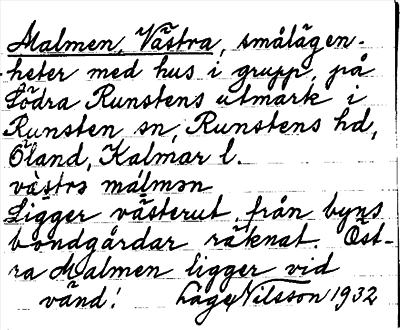 Malmen, Västra, smålägen-
heter med hus i grupp, på
Södra Runstens utmark i
Runsten sn, Runstens hd,
Öland, Kalmar l.
västra málmən
Ligger västerut från byns
bondgårdar räknat. Öst-
ra Malmen ligger vid
vänd! Lage Nilsson 1932